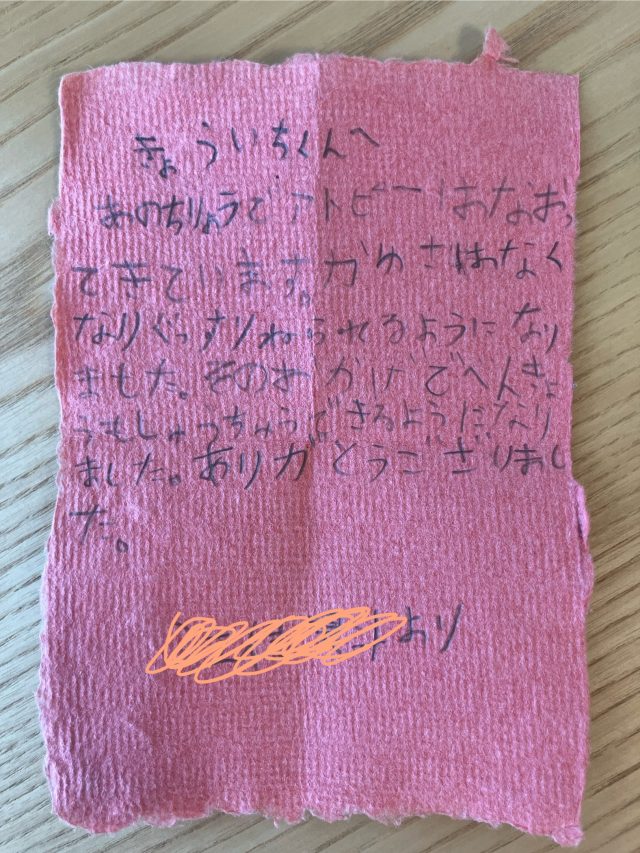 きょういちくんへ
あのちりょうでアトピーはなおっ
てきています。かゆさはなく
なりぐっすりねられるようになり
ました。そのおかげでべんきょ
うもしゅうちゅうできるようになり
ました。ありがとうございまし
た。
より